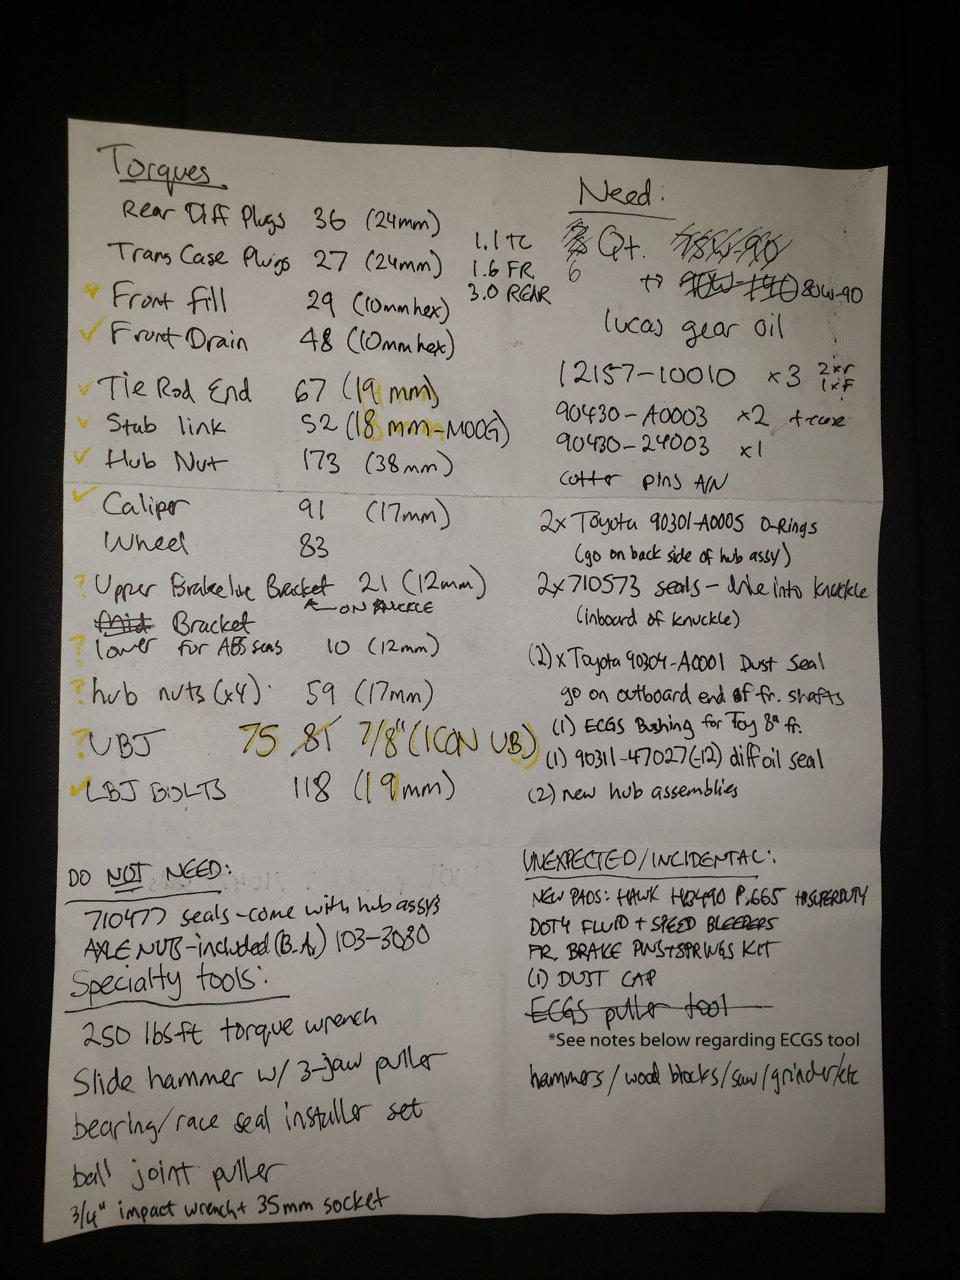 Torques
Rear Diff Plugs 36 (24mm)
Trans Case Plugs 27 (24mm)
Front fill 29 (10mm hex)
Front Drain 48 (10mm hex)
1.1 TC
1.6 FR
3.0 REAR
Tie Rod End 67 (19 mm)
Stab link 52 (18 mm-MOOG)
Hub Nut 173 (38mm)
Caliper 91 (17mm)
Wheel 83
? Upper Brake line Bracket 21 (12mm)
ON KNUCKLE
Bracket
? lower For ABS sens 10 (12mm)
? hub nuts (x4) 59 (17mm)
? UBJ 75 81 7/8" (ICON UBJ)
LBJ BOLTS 118 (19mm)
DO NOT NEED:
710477 seals-come with hub assys
AXLE NUTS-included (B.A.) 103-3080
Specialty tools:
250 lbs-ft torque wrench
Slide hammer w/ 3-jaw puller
bearing/race seal installer set
ball joint puller
3/4" impact wrench + 35mm socket
Need:
Qt. 75W-90
6
80W-90
lucas gear oil
12157-10010 x3 2xr
1xF
90430-A0003 x2 t-case
90430-24003 x1
cotter pins A/N
2x Toyota 90301-A0005 O-Rings
(go on back side of hub assy)
2x 710573 seals - drive into knuckle
(inboard of knuckle)
(2) x Toyota 90304-A0001 Dust Seal
go on outboard end of fr. shafts
(1) ECGS Bushing for Toy 8" fr.
(1) 90311-47027 (-12) diff oil seal
(2) new hub assemblies
UNEXPECTED/INCIDENTAL:
NEW PADS: HAWK P.665 SUPERDUTY
DOT4 FLUID + SPEED BLEEDERS
FR. BRAKE PINS+SPRINGS KIT
(1) DUST CAP
ECGS puller tool
*See notes below regarding ECGS tool
hammers/wood blocks/saw/grinder/etc